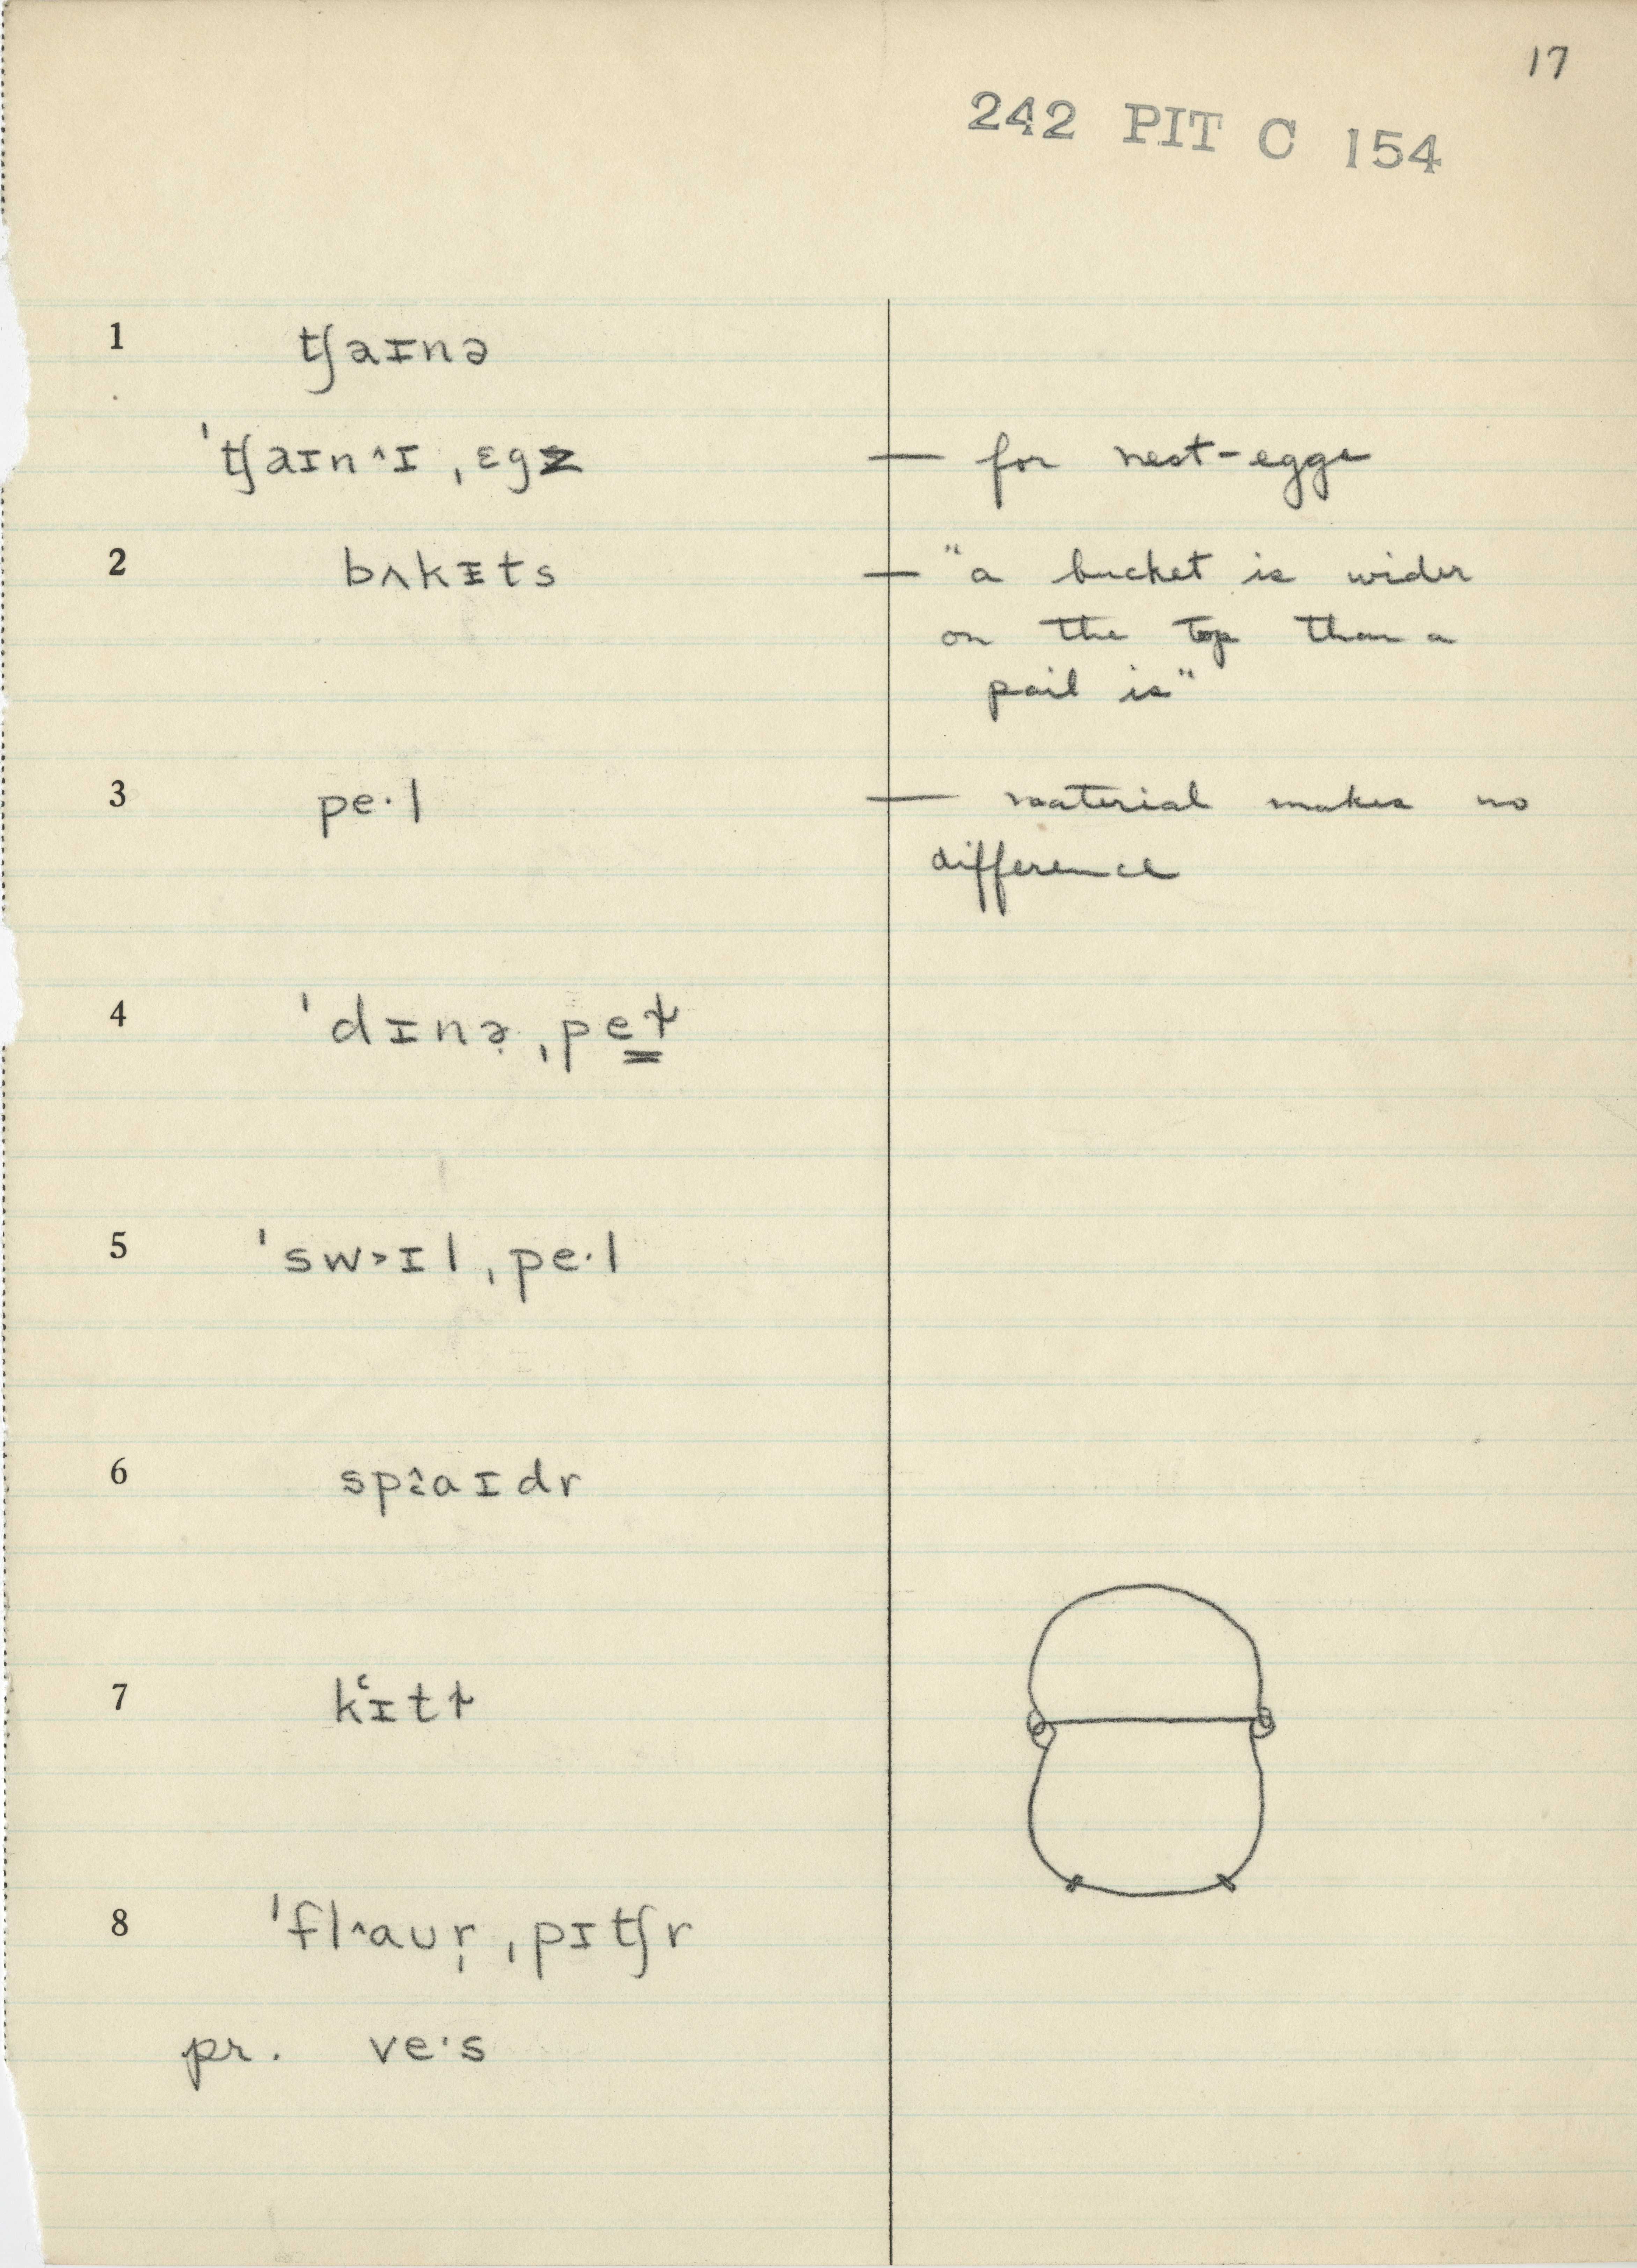 17
242 PIT C 154
1 tʃaɪnə
ˈtʃaɪn^ɪ ˌɛgz — for nest-eggs
2 bʌkɪ̵ts — "a bucket is wider
on the top than a
pail is"
3 pe·l — material makes no
difference
4 ˈdɪnə̣ ˌpeɫ
5 ˈsw˃ɪl ˌpe·l
6 spaɪdr
7 kʿɪtɫ
8 ˈfl^aʊr̩ ˌpɪtʃr
pr. ve·s